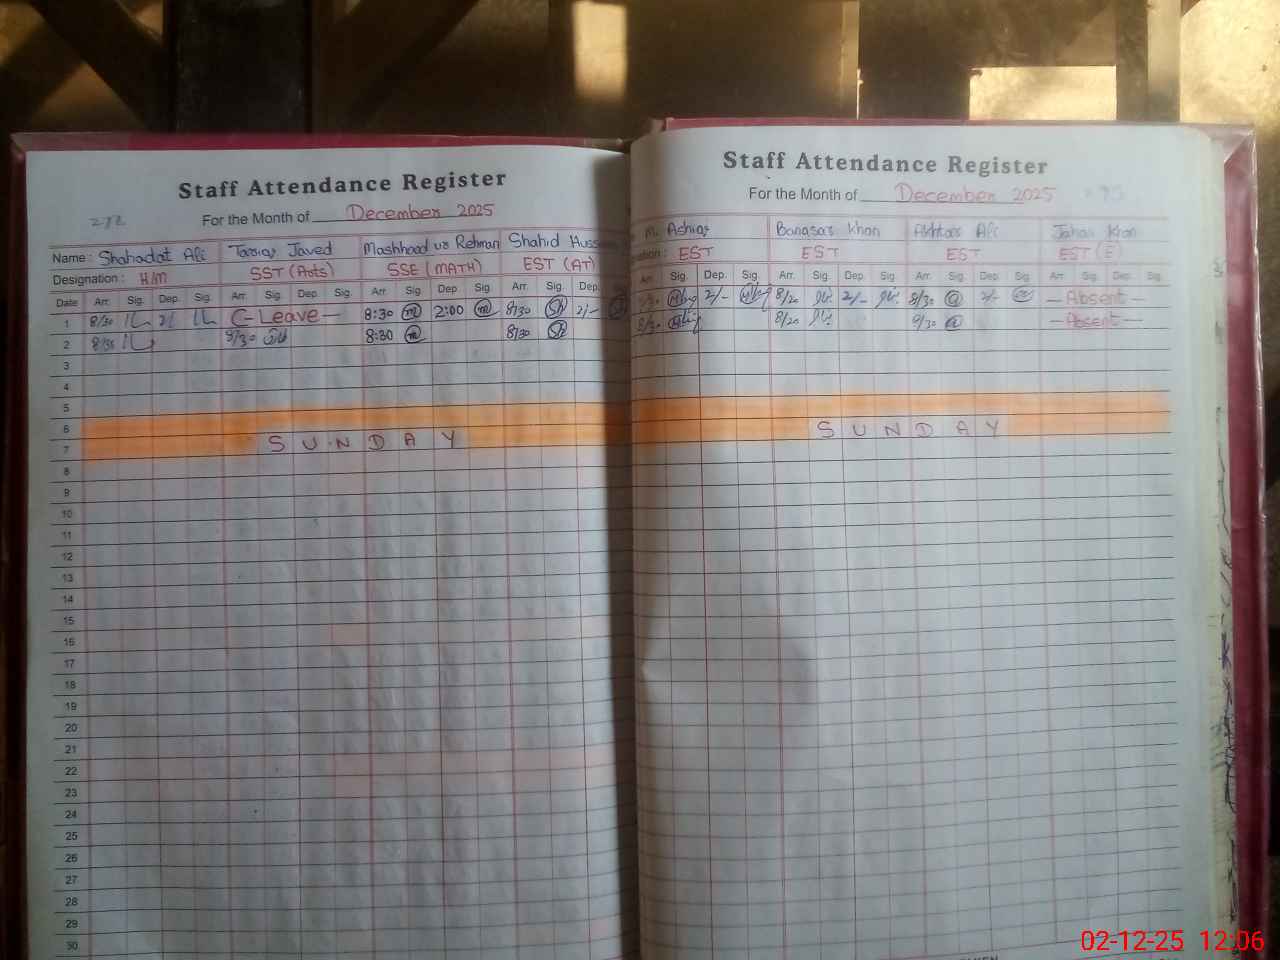 Staff Attendance Register
For the Month of December 2025
Name: Shahadat Ali Tariq Javed Mashhood ur Rehman Shahid
Designation: H/M SST (Arts) SSE (MATH) EST (AT)
Date Arr. Sig. Dep. Sig. Arr. Sig. Dep. Sig. Arr. Sig. Dep. Sig. Arr. Sig. Dep.
1 8/30 2/ C-Leave- 8:30 m 2:00 m 8/30 Sh 2/-
2 8/30 8/30 8:30 m 8/30 Sh
3
4
5
6
7 SUNDAY
8
9
10
11
12
13
14
15
16
17
18
19
20
21
22
23
24
25
26
27
28
29
30
Staff Attendance Register
For the Month of December 2025
M. Ashiq Khan Ali Khan
EST EST EST EST (E)
Arr. Sig. Dep. Sig. Arr. Sig. Dep. Sig. Arr. Sig. Dep. Sig. Arr. Sig. Dep. Sig.
8/30 2/- 8/20 2/- 8/30 2/- -Absent-
8/30 8/20 8/30 -Absent-
SUNDAY
02-12-25 12:06